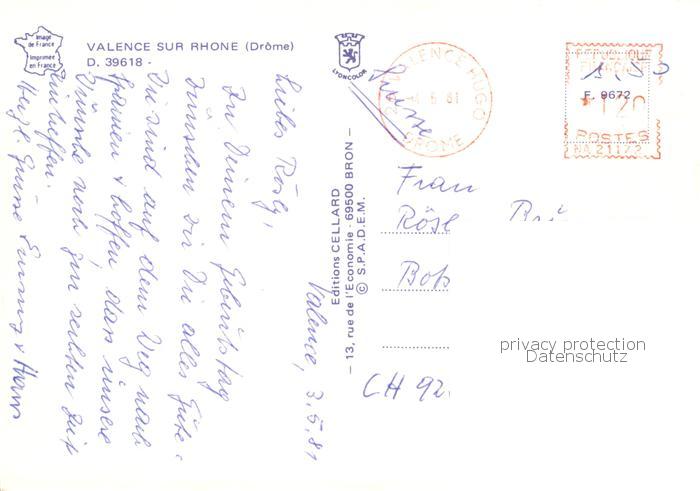 Image
de France
Imprimée
en France
VALENCE SUR RHONE (Drôme)
D. 39618 -
LYONCOLOR
VALENCE HUGO
5 81
DROME
REPUBLIQUE
FRANÇAISE
F. 9672
120
POSTES
NA 21172
Suisse
Valence, 3.5.81
Liebes Rösly,
Zu Deinem Geburtstag
wünschen wir Dir alles Gute.
Wir sind auf dem Weg nach
Spanien & hoffen, dass unsere
Wünsche noch zur rechten Zeit
eintreffen.
Herzl. Grüsse
Editions CELLARD
— 13, rue de l'Economie - 69500 BRON —
© S.P.A.D.E.M.
Frau
Rösl
CH 92
privacy protection
Datenschutz